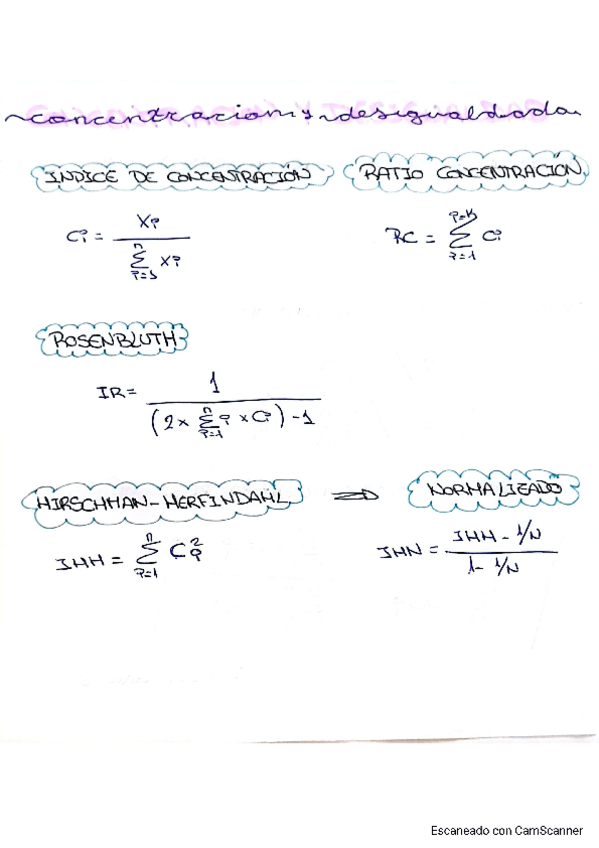 ~concentracion y desigualdad~
INDICE DE CONCENTRACIÓN RATIO CONCENTRACIÓN
Ci = Xi / ∑_{i=1}^{n} Xi RC = ∑_{i=1}^{i=K} Ci
ROSENBLUTH
IR = 1 / ((2 x ∑_{i=1}^{n} i x Ci) - 1)
HIRSCHMAN - HERFINDAHL ⇒ NORMALIZADO
IHH = ∑_{i=1}^{n} C_i^2 IHN = (IHH - 1/N) / (1 - 1/N)
Escaneado con CamScanner